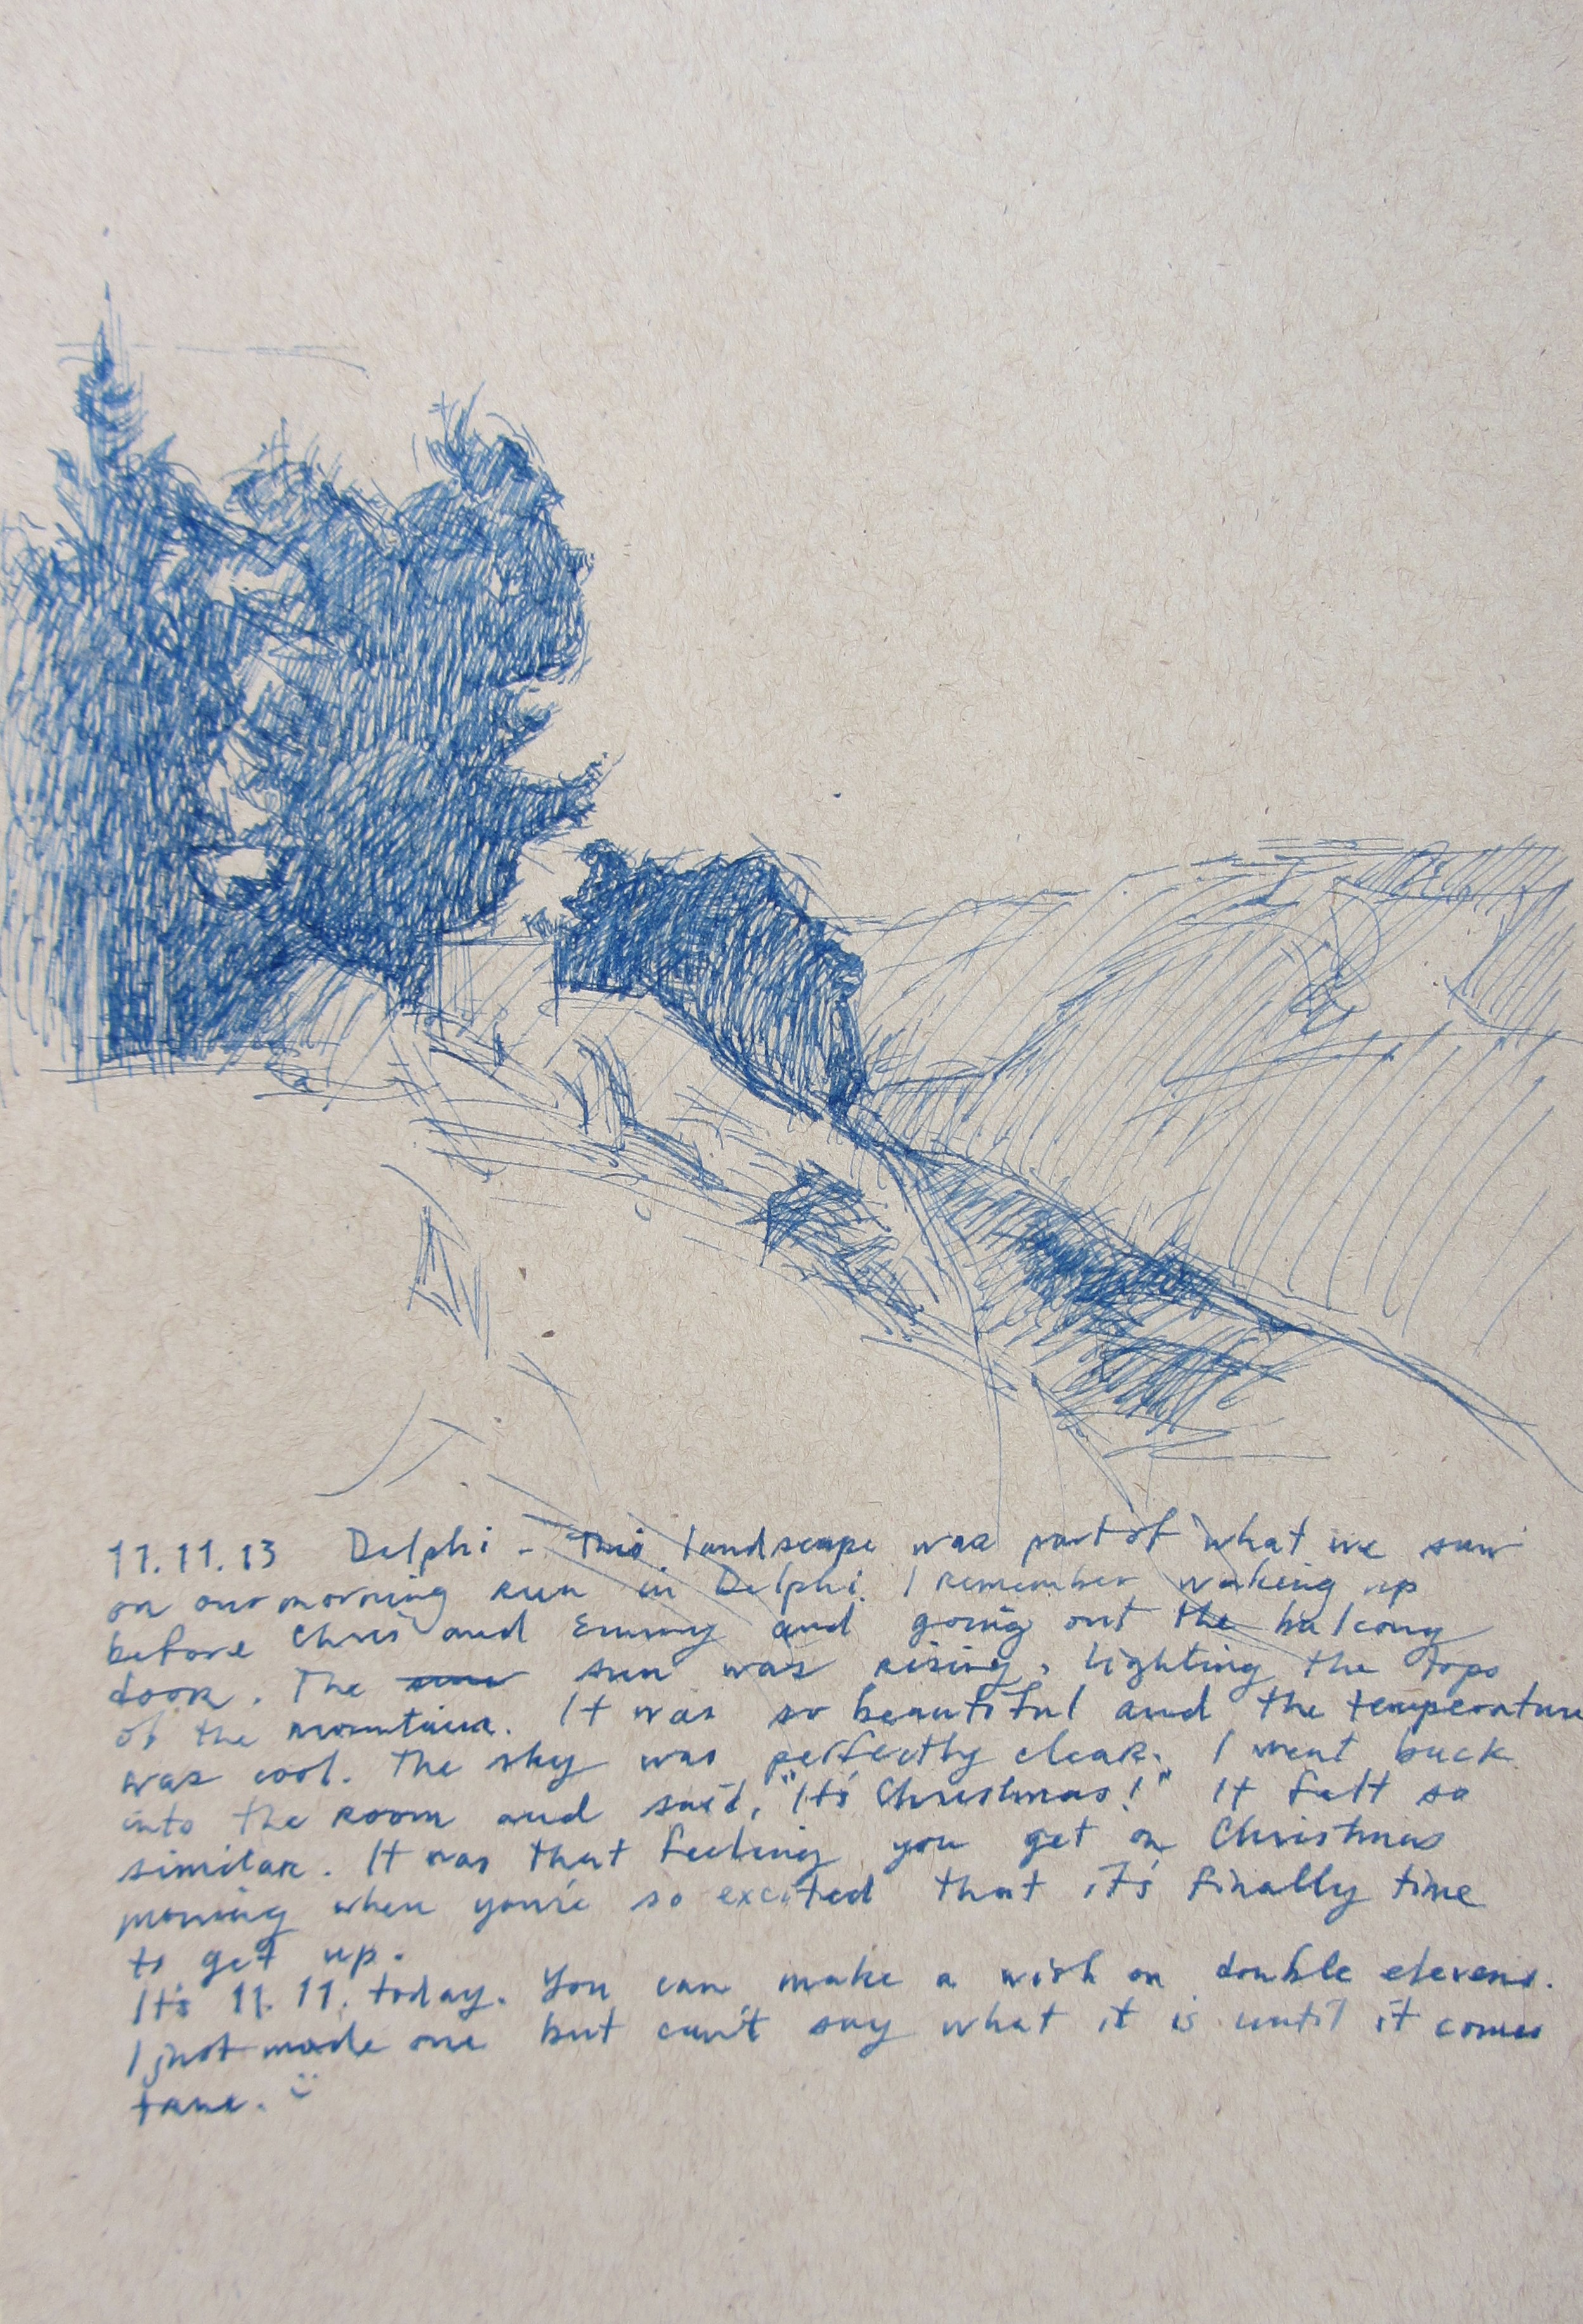 11.11.13 Delphi - This landscape was part of what we saw
on our morning run in Delphi. I remember waking up
before Chris and Emmy and going out the balcony
door. The sun was rising, lighting the tops
of the mountain. It was so beautiful and the temperature
was cool. The sky was perfectly clear. I went back
into the room and said, "It's Christmas!" It felt so
similar. It was that feeling you get on Christmas
morning when you're so excited that it's finally time
to get up.
It's 11.11. today. You can make a wish on double elevens.
I just made one but can't say what it is until it comes
true. :)